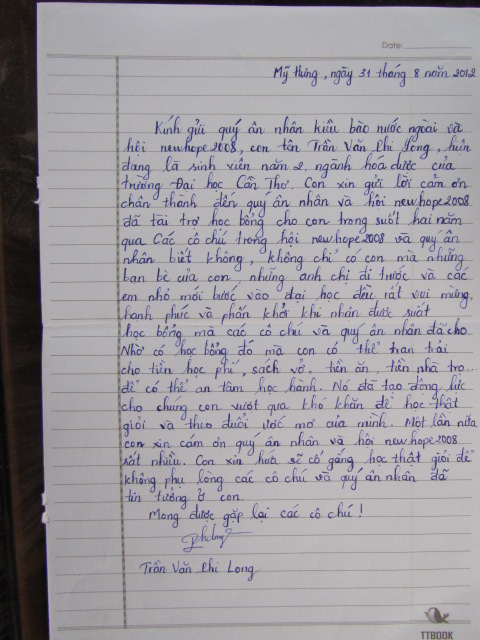 Date:
Mỹ Hưng, ngày 31 tháng 8 năm 2012
Kính gửi quý ân nhân kiều bào nước ngoài và
hội newhope2008, con tên Trần Văn Phi Long, hiện
đang là sinh viên năm 2, ngành hóa dược của
trường Đại học Cần Thơ. Con xin gửi lời cảm ơn
chân thành đến quý ân nhân và hội newhope2008
đã tài trợ học bổng cho con trong suốt hai năm
qua Các cô chú trong hội newhope2008 và quý ân
nhân biết không, không chỉ có con mà những
bạn bè của con, những anh chị đi trước và các
em nhỏ mới bước vào đại học đều rất vui mừng,
hạnh phúc và phấn khởi khi nhận được suất
học bổng mà các cô chú và quý ân nhân đã cho
Nhờ có học bổng đó mà con có thể trang trải
cho tiền học phí, sách vở, tiền ăn, tiền nhà trọ...
để có thể an tâm học hành. Nó đã tạo động lực
cho chúng con vượt qua khó khăn để học thật
giỏi và theo đuổi ước mơ của mình. Một lần nữa
con xin cám ơn quý ân nhân và hội newhope2008
rất nhiều. Con xin hứa sẽ cố gắng học thật giỏi để
không phụ lòng các cô chú và quý ân nhân đã
tin tưởng ở con.
Mong được gặp lại các cô chú!
Trần Văn Phi Long
TTBOOK